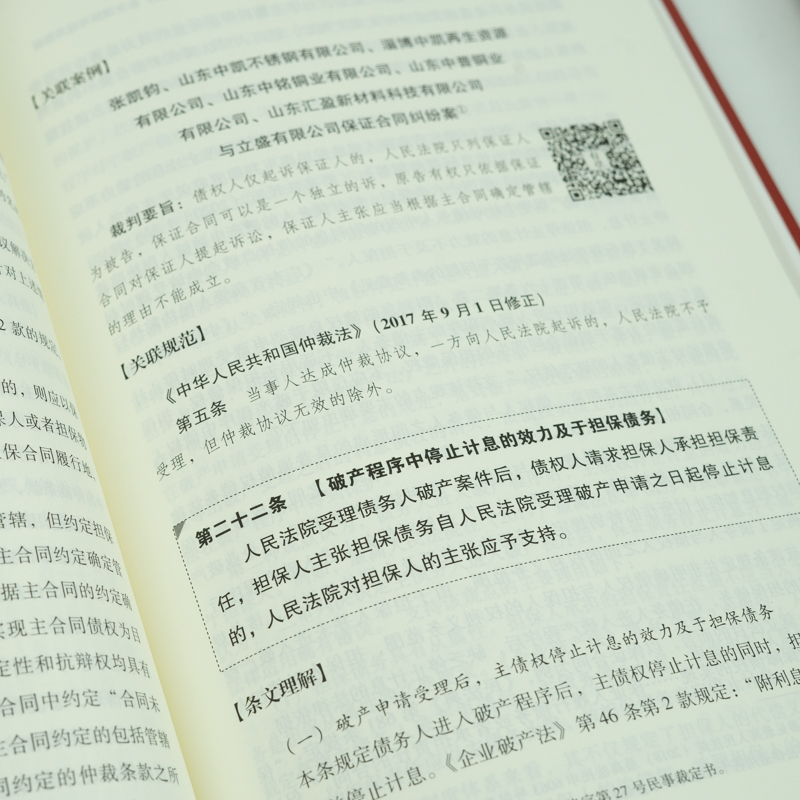 以解决
方对上述
2 款的规定
的，则应以保
保人或者担保物
保合同履行地
管辖，但约定担保
主合同约定确定管
据主合同的约定确
实现主合同债权为目
定性和抗辩权均具有
合同中约定“合同未
主合同约定的包括管辖
同约定的仲裁条款之所
【关联案例】
张凯钧、山东中凯不锈钢有限公司、淄博中凯再生资源
有限公司、山东中铭铜业有限公司、山东中晋铜业
有限公司、山东汇盈新材料科技有限公司
与立盛有限公司保证合同纠纷案①
裁判要旨：债权人仅起诉保证人的，人民法院只列保证人
为被告，保证合同可以是一个独立的诉，原告有权只依据保证
合同对保证人提起诉讼，保证人主张应当根据主合同确定管辖
的理由不能成立。
【关联规范】
《中华人民共和国仲裁法》（2017 年 9 月 1 日修正）
第五条 当事人达成仲裁协议，一方向人民法院起诉的，人民法院不予
受理，但仲裁协议无效的除外。
第二十二条 【破产程序中停止计息的效力及于担保债务】
人民法院受理债务人破产案件后，债权人请求担保人承担担保责
任，担保人主张担保债务自人民法院受理破产申请之日起停止计息
的，人民法院对担保人的主张应予支持。
【条文理解】
（一）破产申请受理后，主债权停止计息的效力及于担保债务
本条规定债务人进入破产程序后，主债权停止计息的同时，担
停止计息。《企业破产法》第 46 条第 2 款规定：“附利息
字第 27 号民事裁定书。